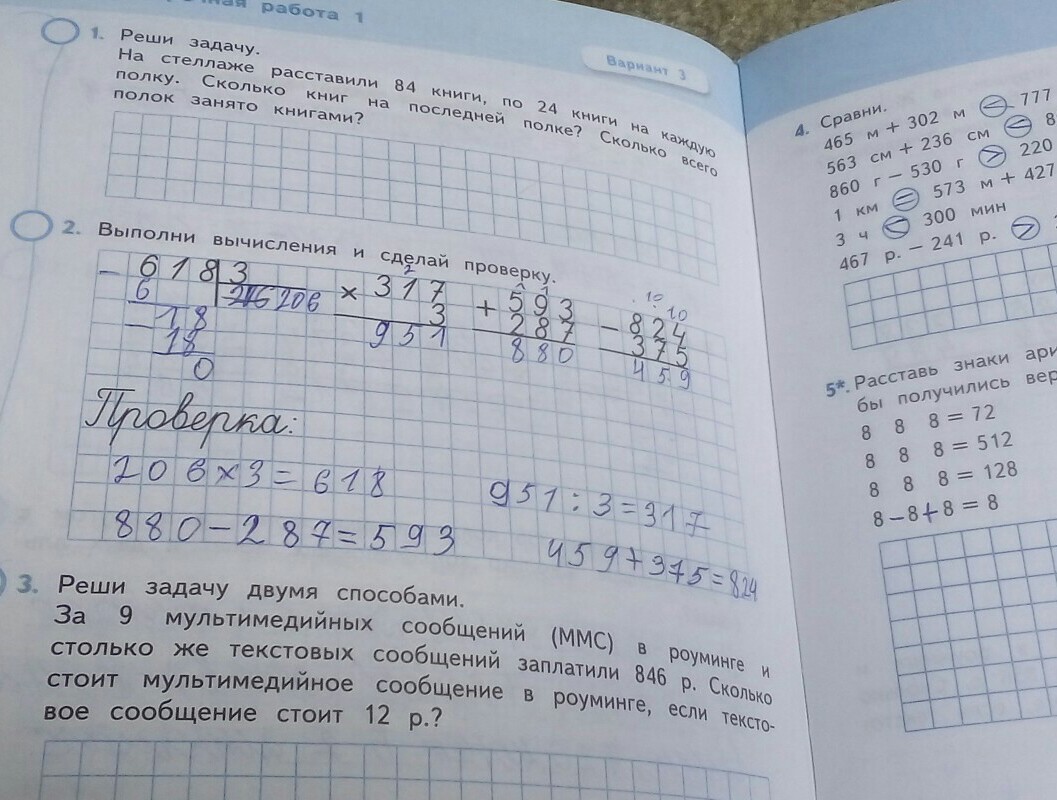 работа 1
Вариант 3
1. Реши задачу.
На стеллаже расставили 84 книги, по 24 книги на каждую
полку. Сколько книг на последней полке? Сколько всего
полок занято книгами?
2. Выполни вычисления и сделай проверку.
- 618 3
6 206
- 18
18
0
2
× 317
3
951
+ 593
287
880
10 10
- 824
375
459
Проверка:
206 × 3 = 618
951 : 3 = 317
880 - 287 = 593
459 + 375 = 824
3. Реши задачу двумя способами.
За 9 мультимедийных сообщений (ММС) в роуминге и
столько же текстовых сообщений заплатили 846 р. Сколько
стоит мультимедийное сообщение в роуминге, если тексто-
вое сообщение стоит 12 р.?
4. Сравни.
465 м + 302 м < 777
563 см + 236 см < 8
860 г – 530 г > 220
1 км = 573 м + 427
3 ч < 300 мин
467 р. – 241 р. >
5*. Расставь знаки
бы получились
8 8 8 = 72
8 8 8 = 512
8 8 8 = 128
8 - 8 + 8 = 8